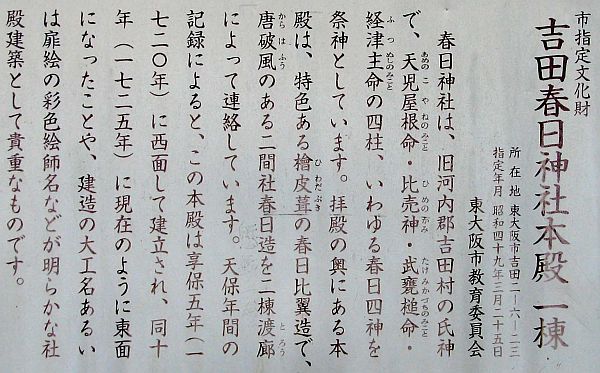 市指定文化財
吉田春日神社本殿 一棟
所在地 東大阪市吉田二ー六ー二三
指定年月 昭和四十九年三月二十五日
東大阪市教育委員会
春日神社は、旧河内郡吉田村の氏神
で、天児屋根命・比売神・武甕槌命・
経津主命の四柱、いわゆる春日四神を
祭神としています。拝殿の奥にある本
殿は、特色ある檜皮葺の春日比翼造で、
唐破風のある二間社春日造を二棟渡廊
によって連絡しています。天保年間の
記録によると、この本殿は享保五年（一
七二〇年）に西面して建立され、同十
年（一七二五年）に現在のように東面
になったことや、建造の大工名あるい
は扉絵の彩色絵師名などが明らかな社
殿建築として貴重なものです。